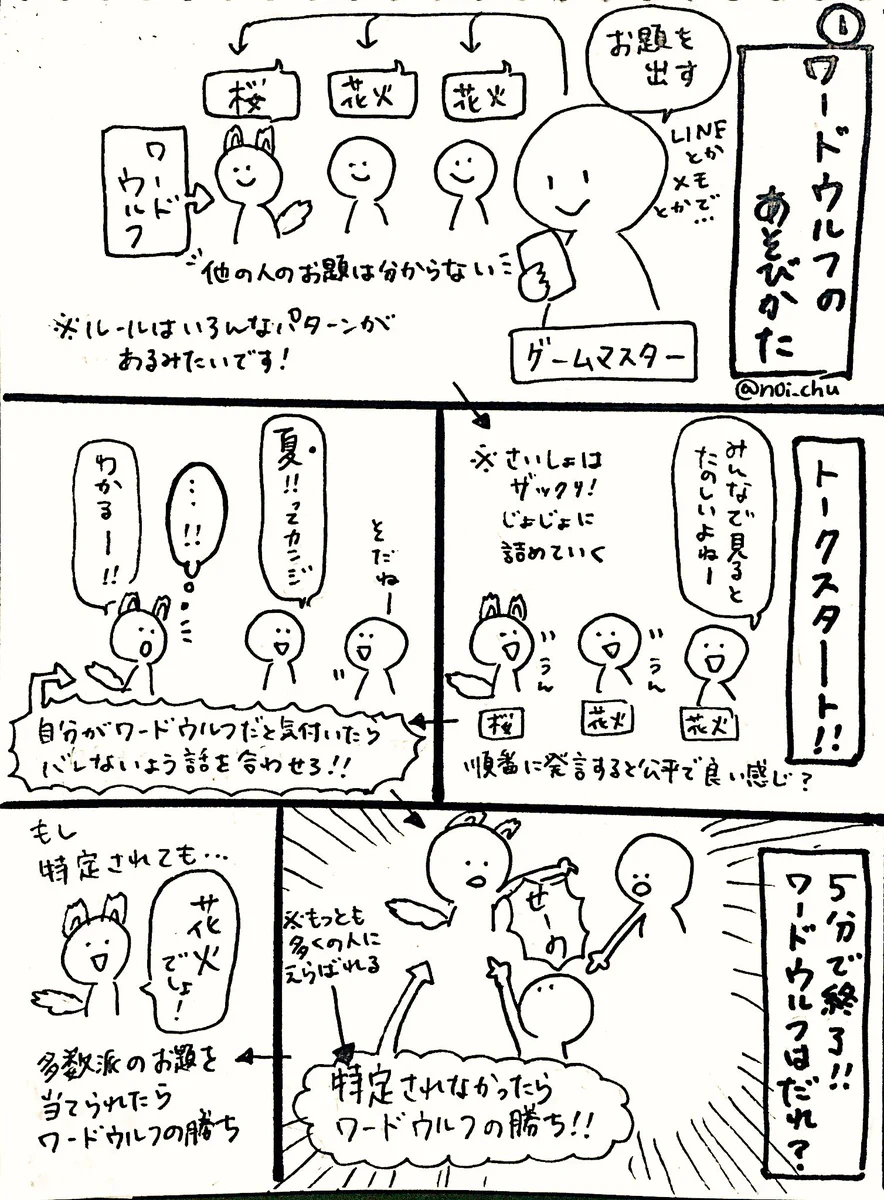 1
ワードウルフの
あそびかた
@n0i_chu
お題を
出す
LINE
とか
メモ
とかで…
ゲームマスター
花火
花火
桜
ワード
ウルフ
他の人のお題は分からない
※ルールはいろんなパターンが
あるみたいです!
トークスタート!!
みんなで見ると
たのしいよねー
※さいしょは
ザックリ!
じょじょに
詰めていく
うん
うん
花火
花火
桜
順番に発言すると公平で良い感じ?
そだねー
夏。!!ってカンジ
…!!
わかるー!!
自分がワードウルフだと気付いたら
バレないよう話を合わせろ!!
5分で終了!!
ワードウルフはだれ?
せーの
※もっとも
多くの人に
えらばれる
特定されなかったら
ワードウルフの勝ち!!
もし
特定されても…
花火
でしょ!
多数派のお題を
当てられたら
ワードウルフの勝ち